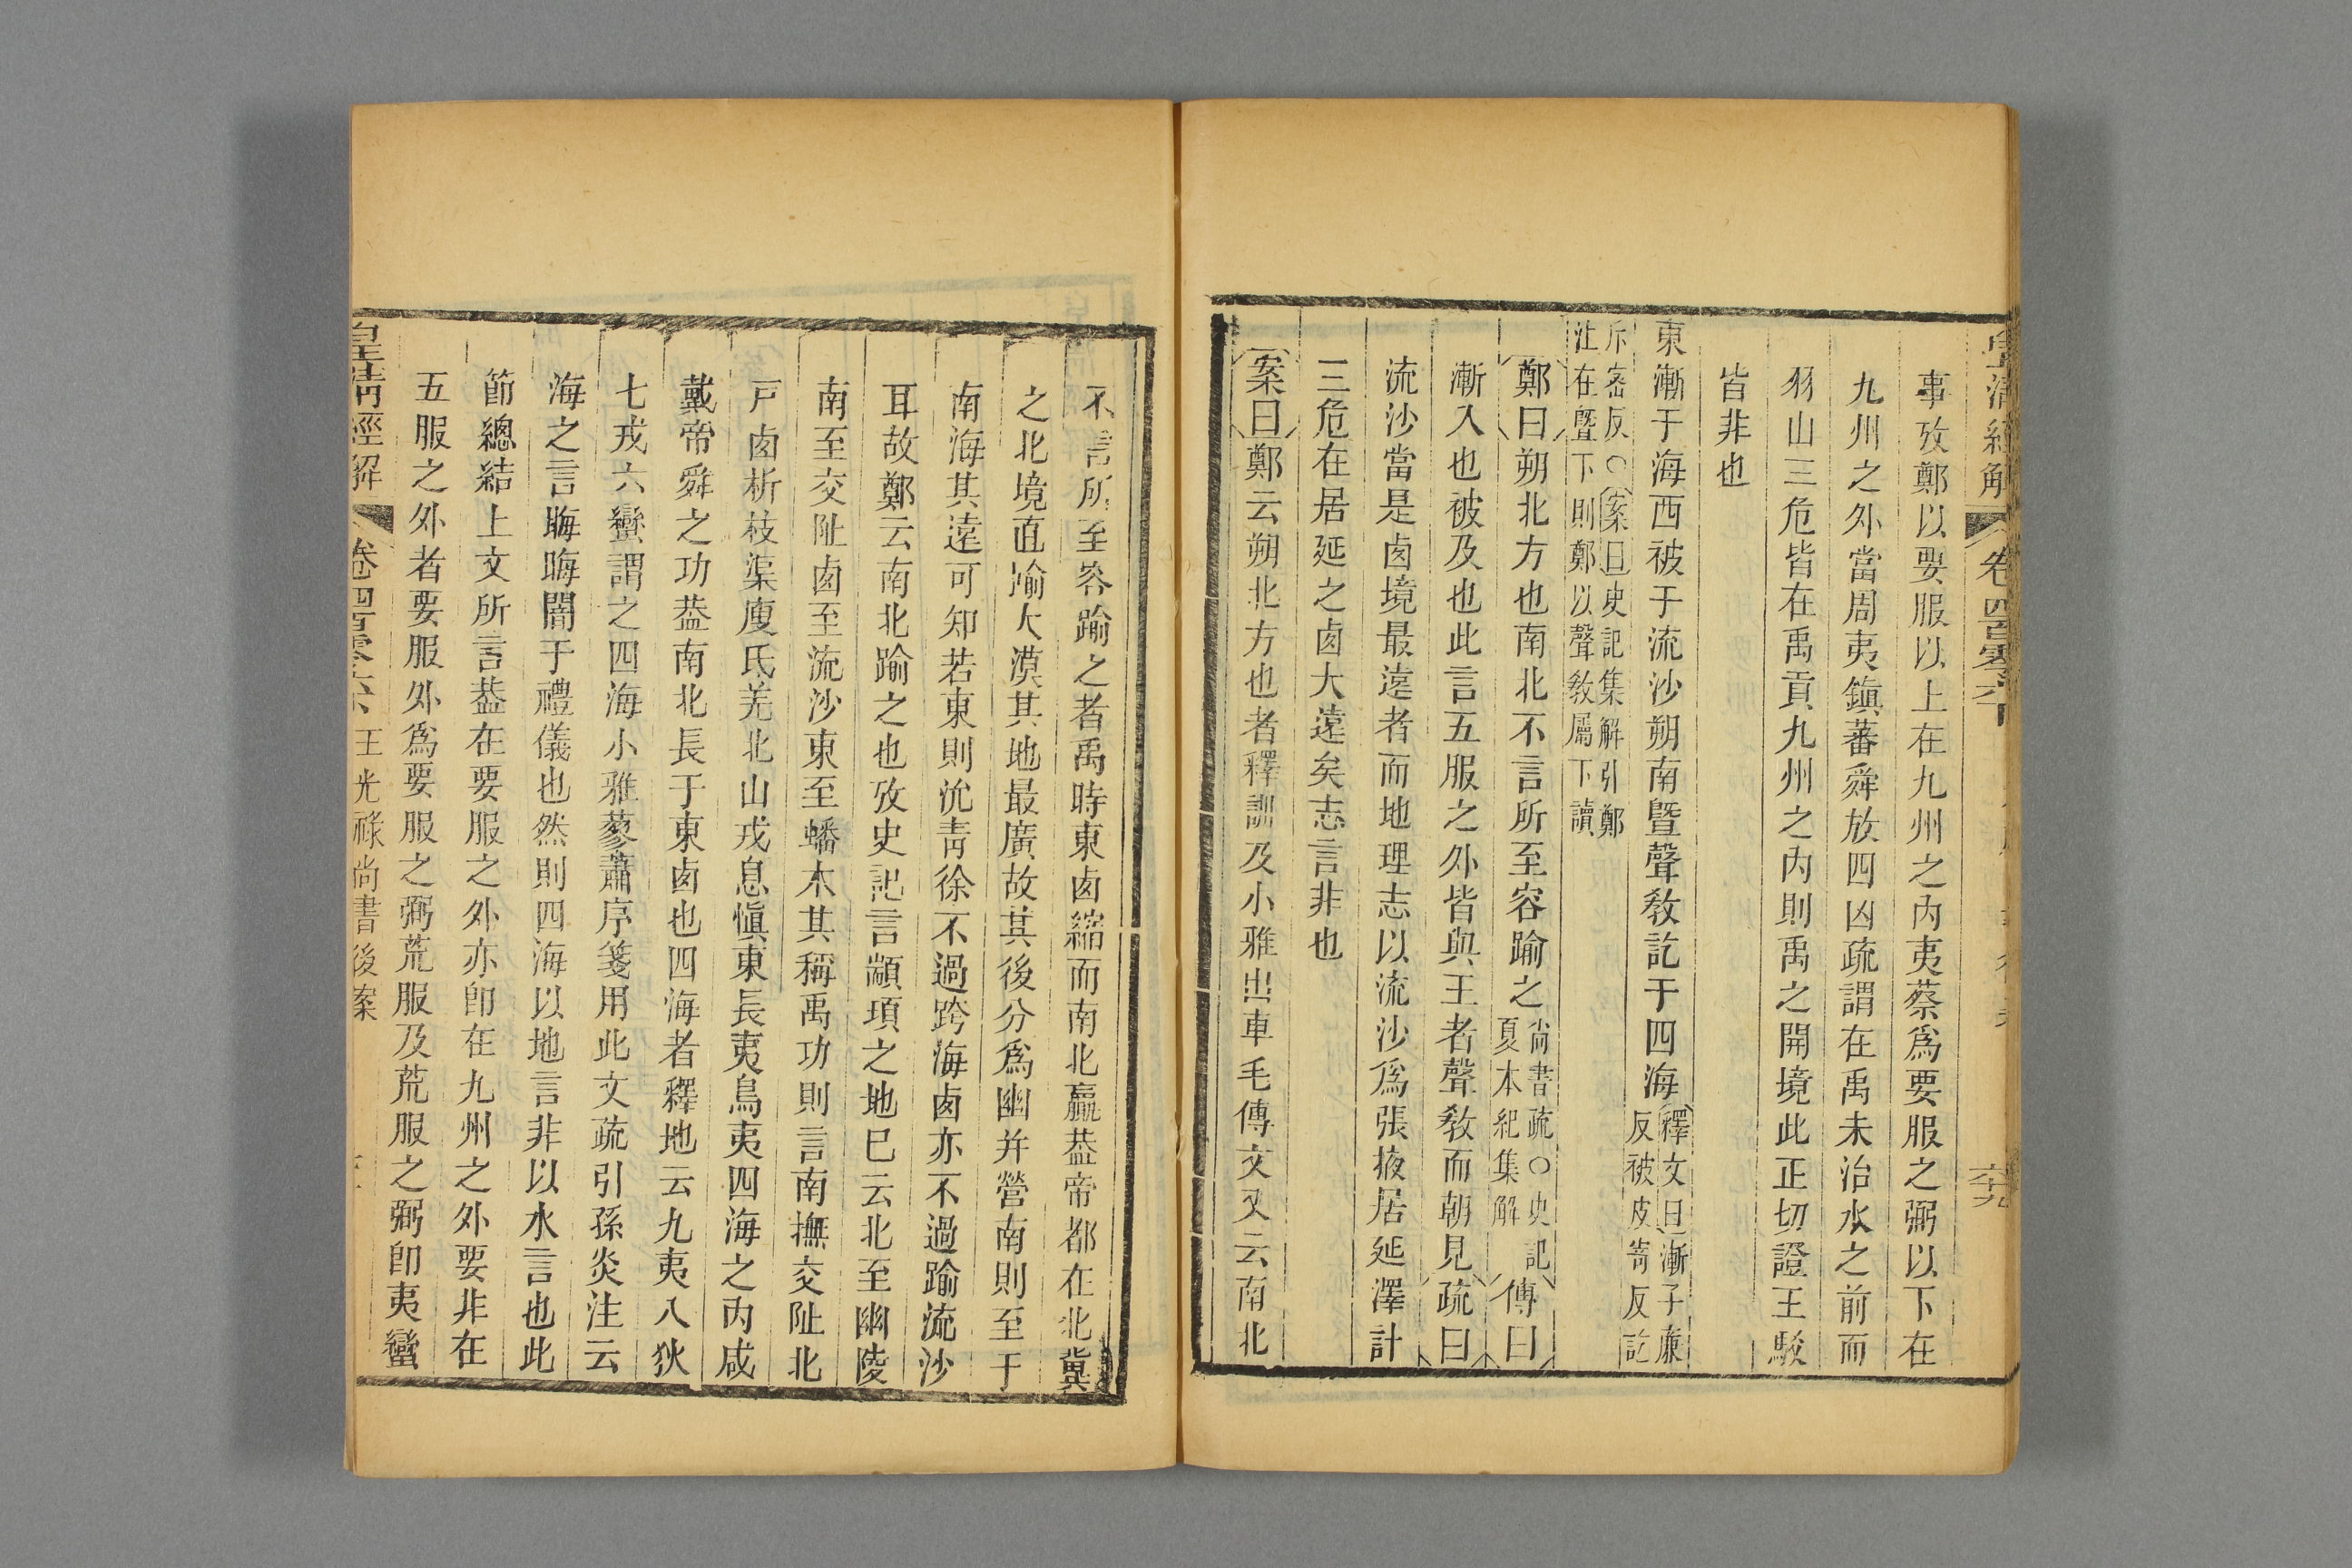 皇清經解 卷四百零六下 六十九
事攷鄭以要服以上在九州之內夷蔡爲要服之弼以下在
九州之外當周夷鎭蕃舜放四凶疏謂在禹未治水之前而
羽山三危皆在禹貢九州之內則禹之開境此正切證王駁
皆非也
東漸于海西被于流沙朔南曁聲敎訖于四海釋文曰漸子廉
反被皮寄反訖
斤密反○案曰史記集解引鄭
注在曁下則鄭以聲敎屬下讀
鄭曰朔北方也南北不言所至容踰之尚書疏○史記
夏本紀集解傳曰
漸入也被及也此言五服之外皆與王者聲敎而朝見疏曰
流沙當是卤境最遠者而地理志以流沙爲張掖居延澤計
三危在居延之卤大遠矣志言非也
案曰鄭云朔北方也者釋訓及小雅出車毛傳文又云南北
不言所至容踰之者禹時東卤縮而南北贏葢帝都在北冀
之北境直踰大漠其地最廣故其後分爲幽并營南則至于
南海其遠可知若東則沇靑徐不過跨海卤亦不過踰流沙
耳故鄭云南北踰之也攷史記言顓頊之地已云北至幽陵
南至交阯卤至流沙東至蟠木其稱禹功則言南撫交阯北
戸卤析枝渠廋氐羌北山戎息愼東長夷鳥夷四海之內咸
戴帝舜之功葢南北長于東卤也四海者釋地云九夷八狄
七戎六蠻謂之四海小雅蓼蕭序箋用此文疏引孫炎注云
海之言晦晦闇于禮儀也然則四海以地言非以水言也此
節總結上文所言葢在要服之外亦卽在九州之外要非在
五服之外者要服外爲要服之弼荒服及荒服之弼卽夷蠻
皇清經解 卷四百零六下 王光祿尚書後案